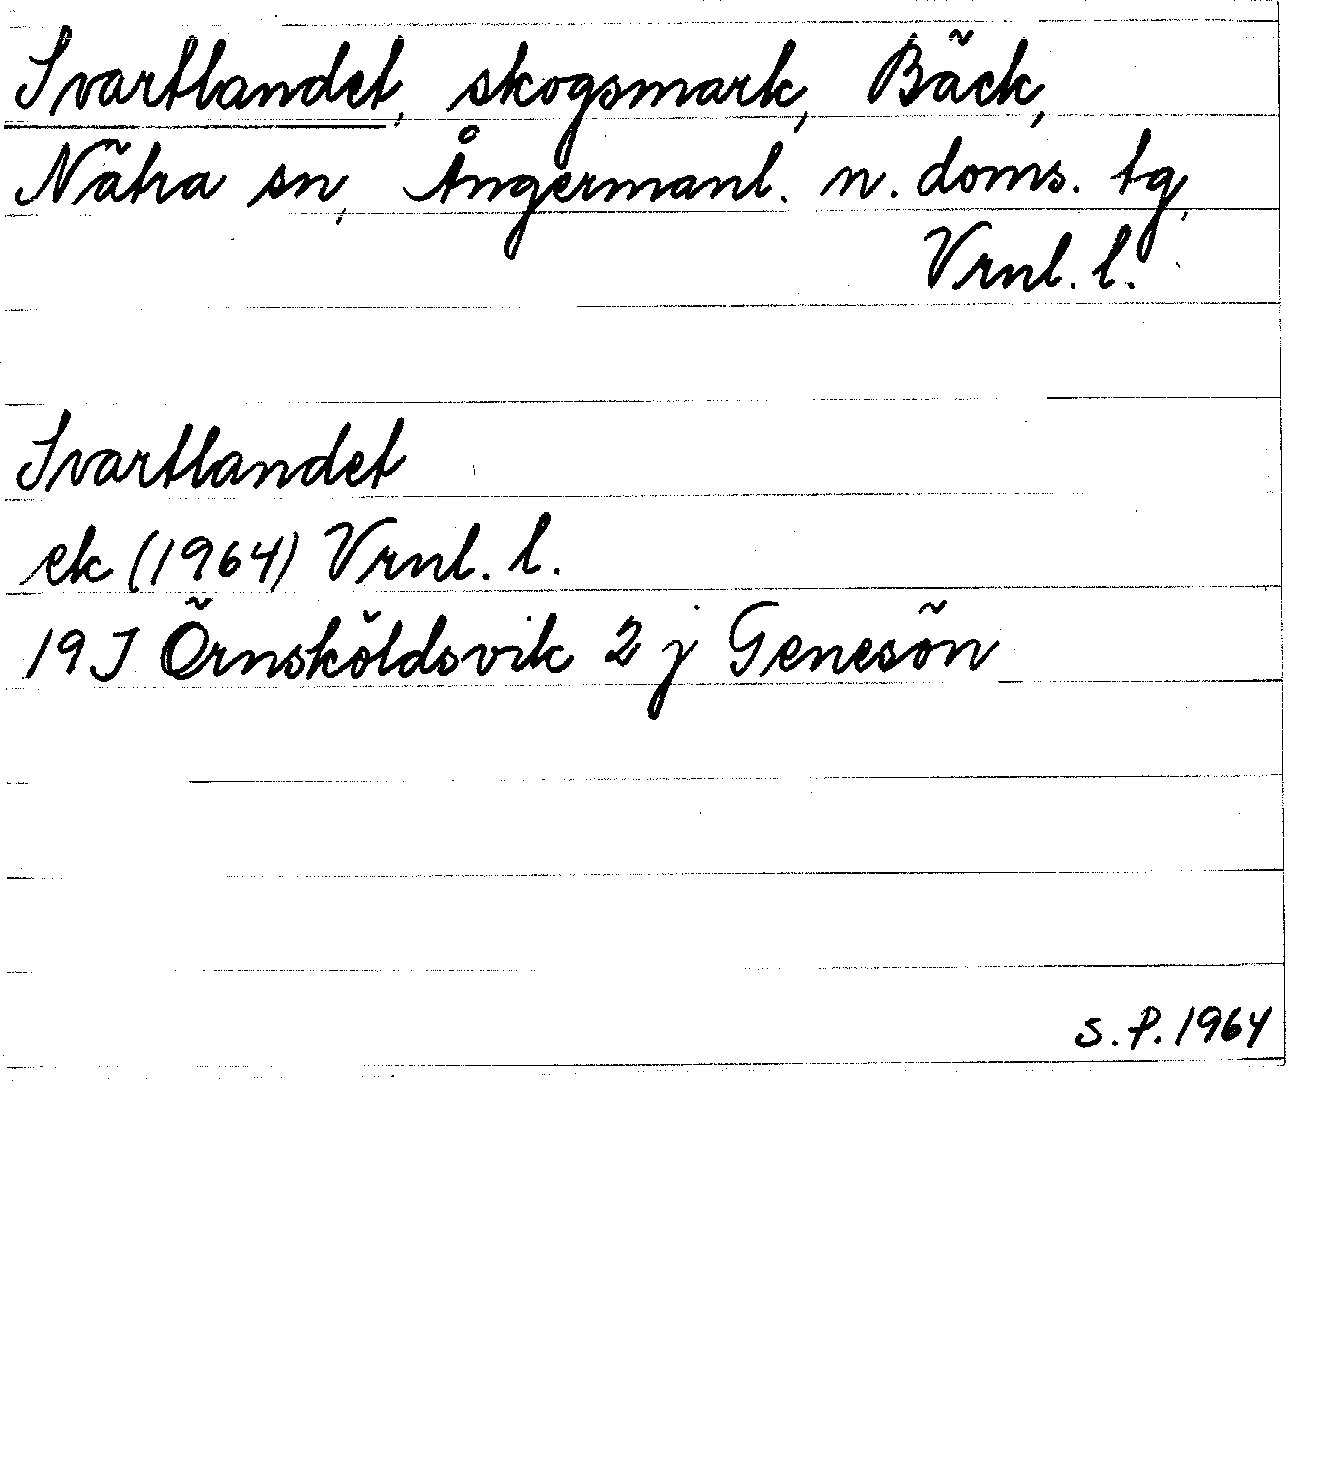 Svartlandet, skogsmark, Bäck,
Nätra sn, Ångermanl. n. doms. tg,
Vrnl. l.
Svartlandet
ek (1964) Vrnl. l.
19 J Örnsköldsvik 2 j Genesön
S.P. 1964